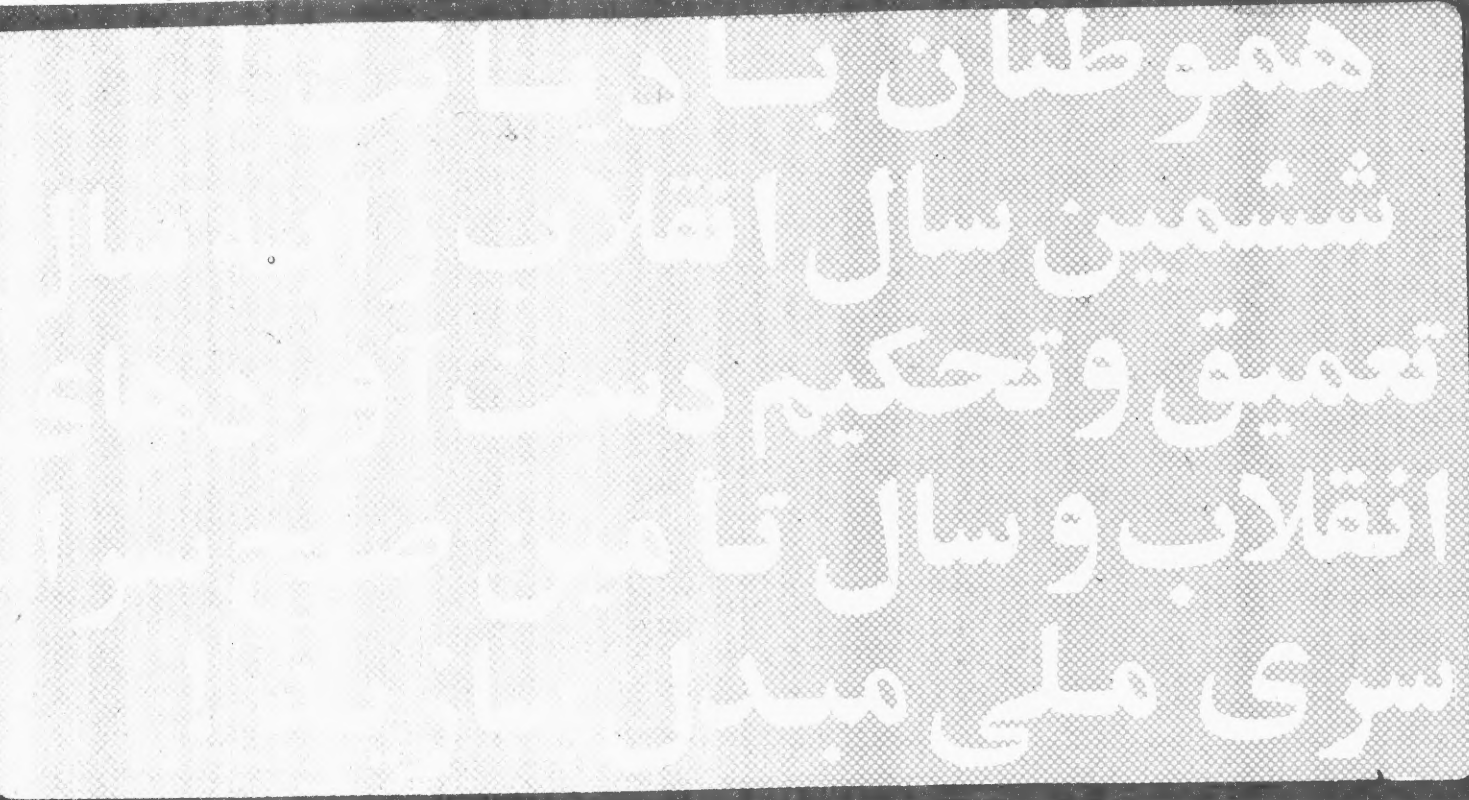 هموطنان بادیانت !
ششمین سال انقلاب را به سال
تعمیق و تحکیم دست آوردهای
انقلاب و سال تأمین صلح سرا
سری ملی مبدل سازید !